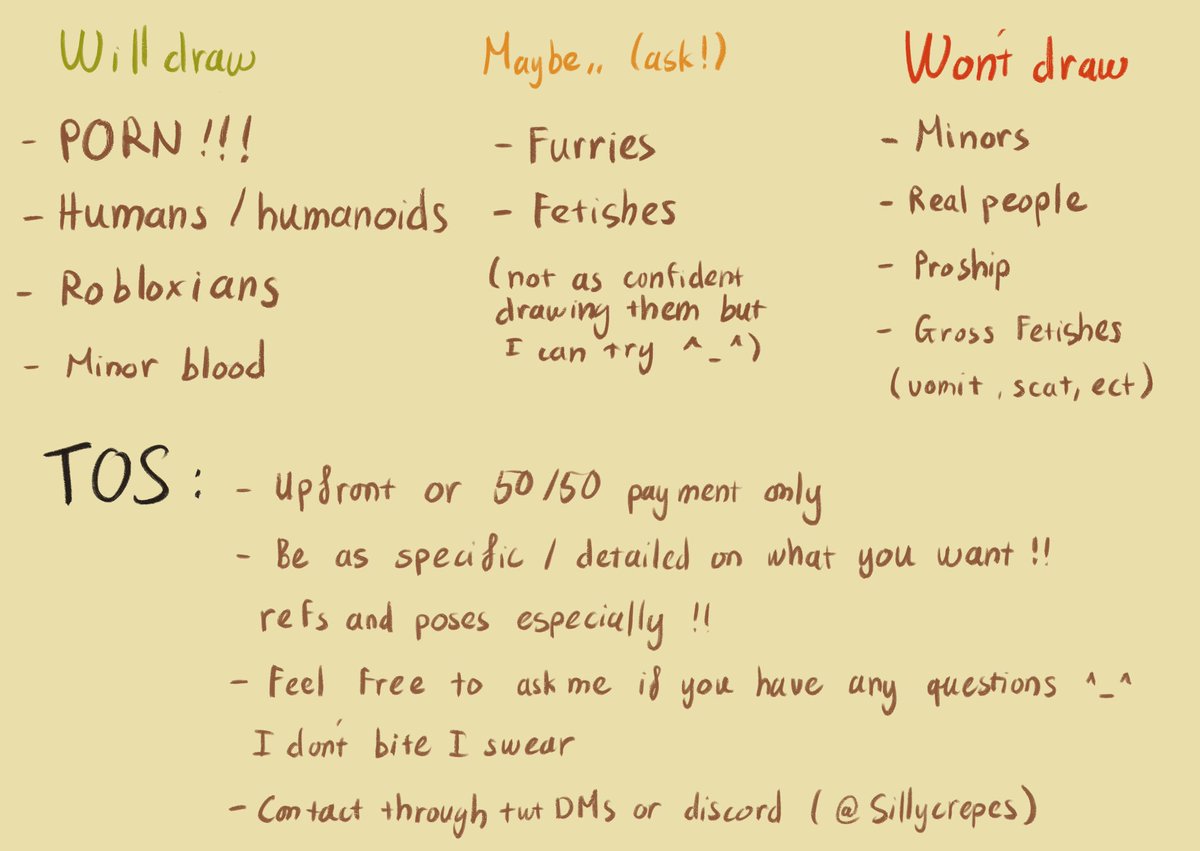 Will draw
- PORN!!!
- Humans / humanoids
- Robloxians
- Minor blood
Maybe,, (ask!)
- Furries
- Fetishes
(not as confident
drawing them but
I can try ^_^)
Won't draw
- Minors
- Real people
- Proship
- Gross Fetishes
(vomit, scat, ect)
TOS:
- Upfront or 50/50 payment only
- Be as specific / detailed on what you want !!
refs and poses especially !!
- Feel free to ask me if you have any questions ^_^
I don't bite I swear
- Contact through twt DMs or discord (@Sillycrepes)